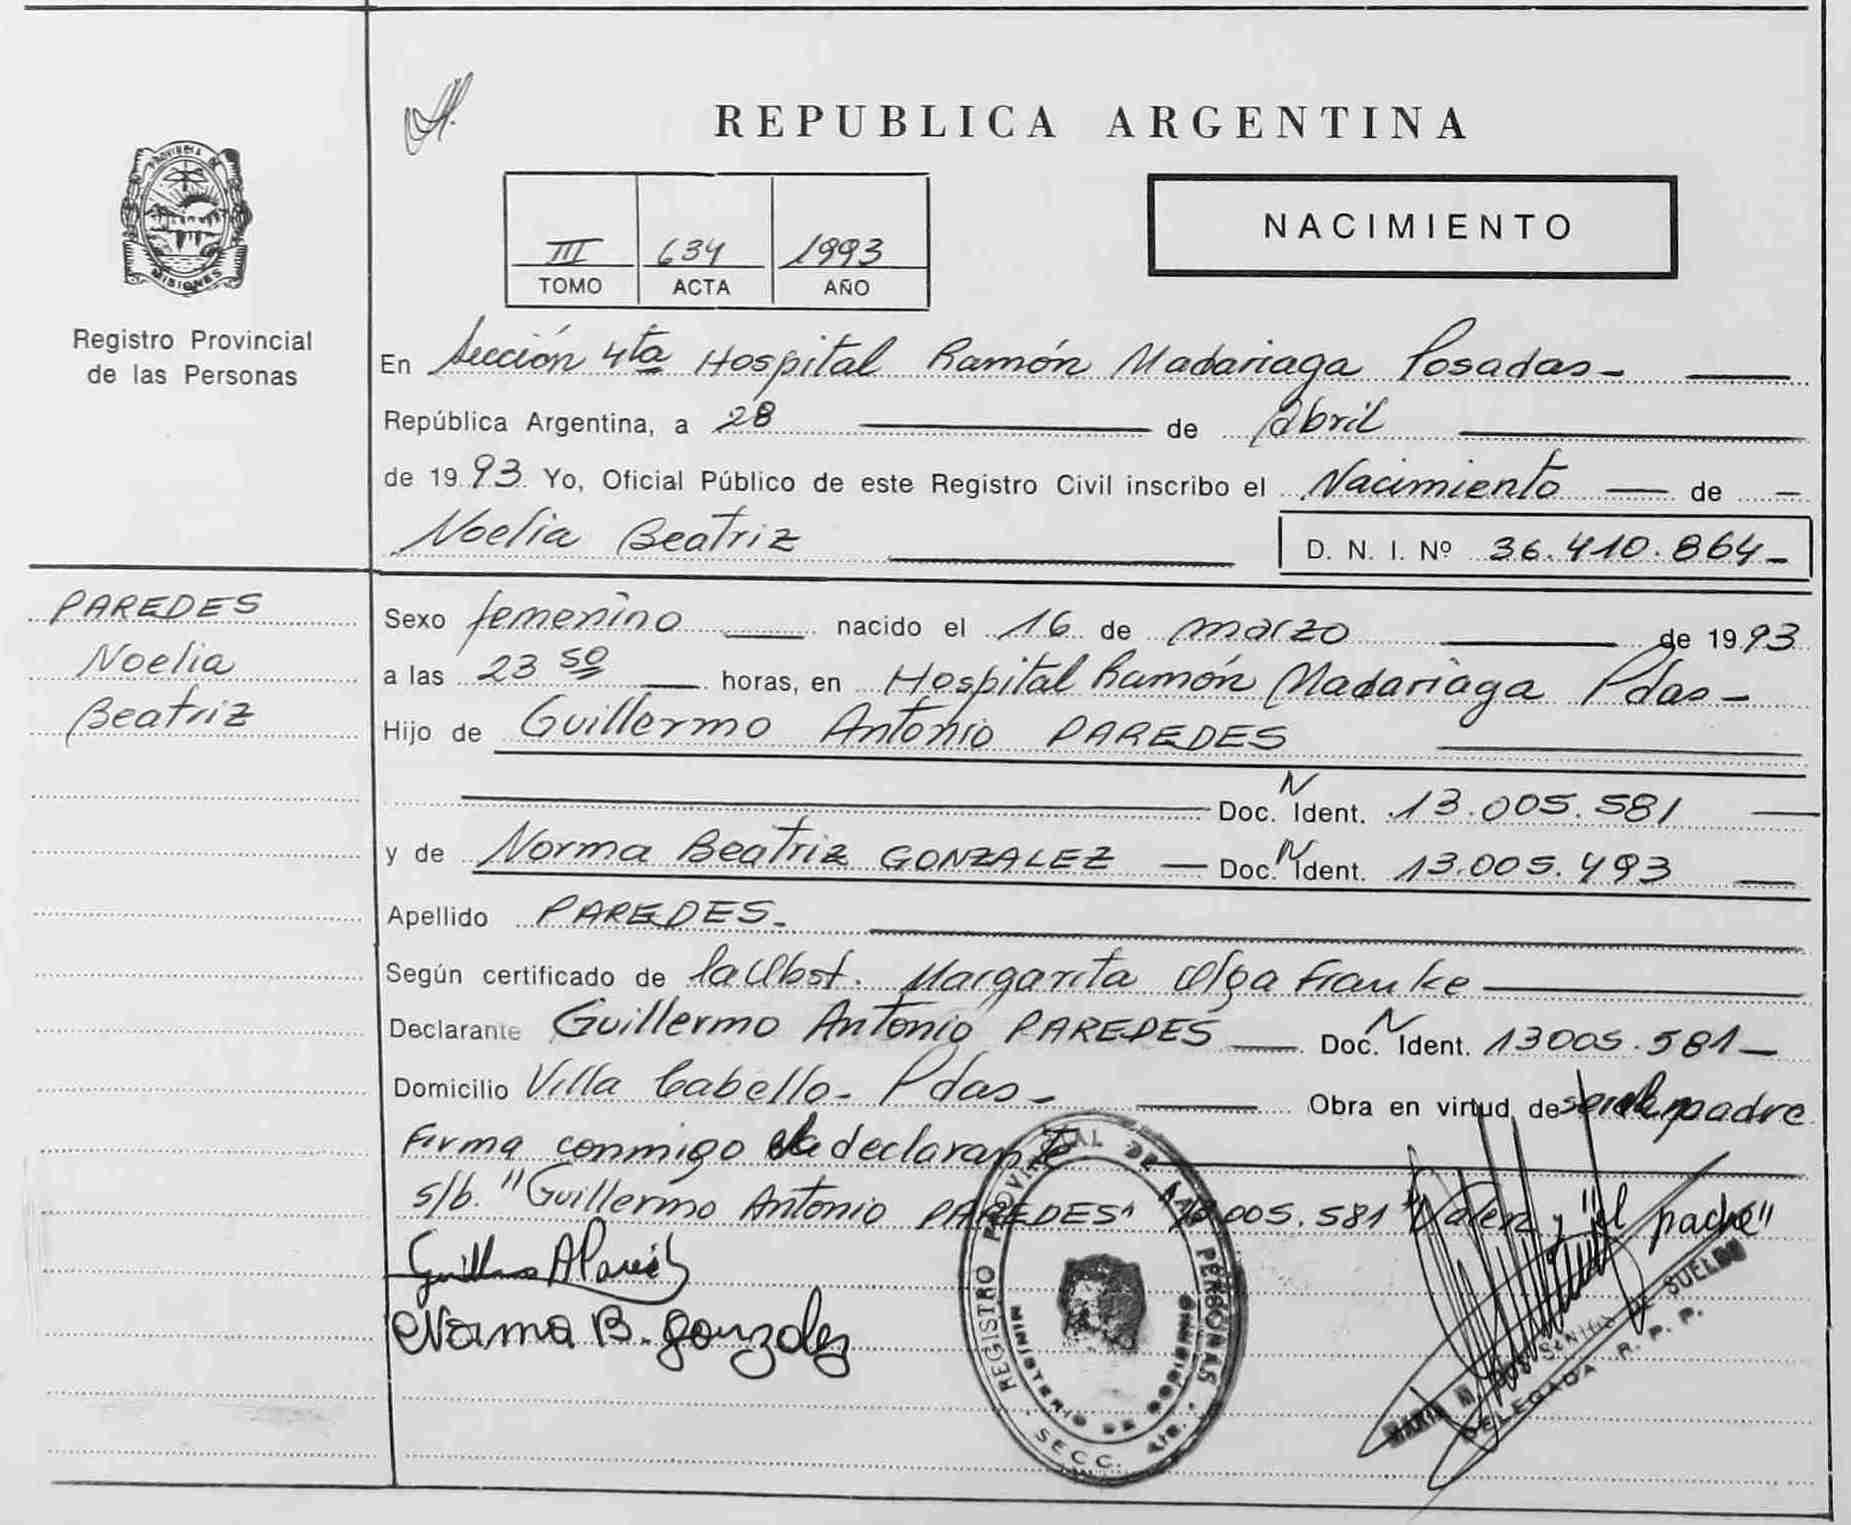 PROVINCIA DE
MISIONES
Registro Provincial
de las Personas
PAREDES
Noelia
Beatriz
REPUBLICA ARGENTINA
III 634 1993
TOMO ACTA AÑO
NACIMIENTO
En Sección 4ta Hospital Ramón Madariaga Posadas-
República Argentina, a 28 de abril
de 1993 Yo, Oficial Público de este Registro Civil inscribo el Nacimiento de
Noelia Beatriz D. N. I. Nº 36.410.864-
Sexo femenino nacido el 16 de marzo de 1993
a las 23 50 horas, en Hospital Ramón Madariaga Pdas-
Hijo de Guillermo Antonio PAREDES
Doc. N Ident. 13.005.581
y de Norma Beatriz GONZALEZ Doc. N Ident. 13.005.493
Apellido PAREDES-
Según certificado de la Obst. Margarita Olga Franke
Declarante Guillermo Antonio PAREDES Doc. N Ident. 13005.581-
Domicilio Villa Cabello- Pdas- Obra en virtud de padre
Firma conmigo declarante
s/b. "Guillermo Antonio PAREDES" 13.005.581 "Valen y "el padre"
Norma B. Gonzalez
REGISTRO PROVINCIAL DE LAS PERSONAS
MINISTERIO DE GOBIERNO
SECC. 4ta.
DE SUELDO
DELEGADA R. P. P.